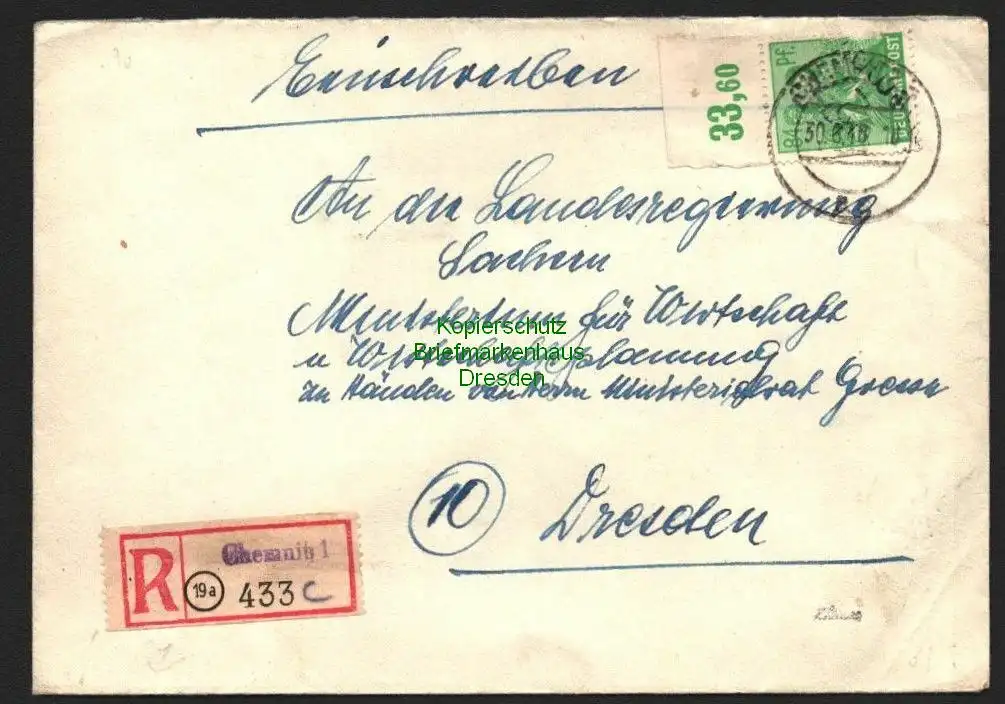 Einschreiben
33,60
84 Pf.
DEUTSCHE POST
CHEMNITZ
An die Landesregierung
Sachsen
Ministerium für Wirtschaft
u Wirtschaftsplanung
zu Händen von Herrn Ministerialrat
Kopierschutz
Briefmarkenhaus
Dresden
10 Dresden
R Chemnitz 1
19a 433 c